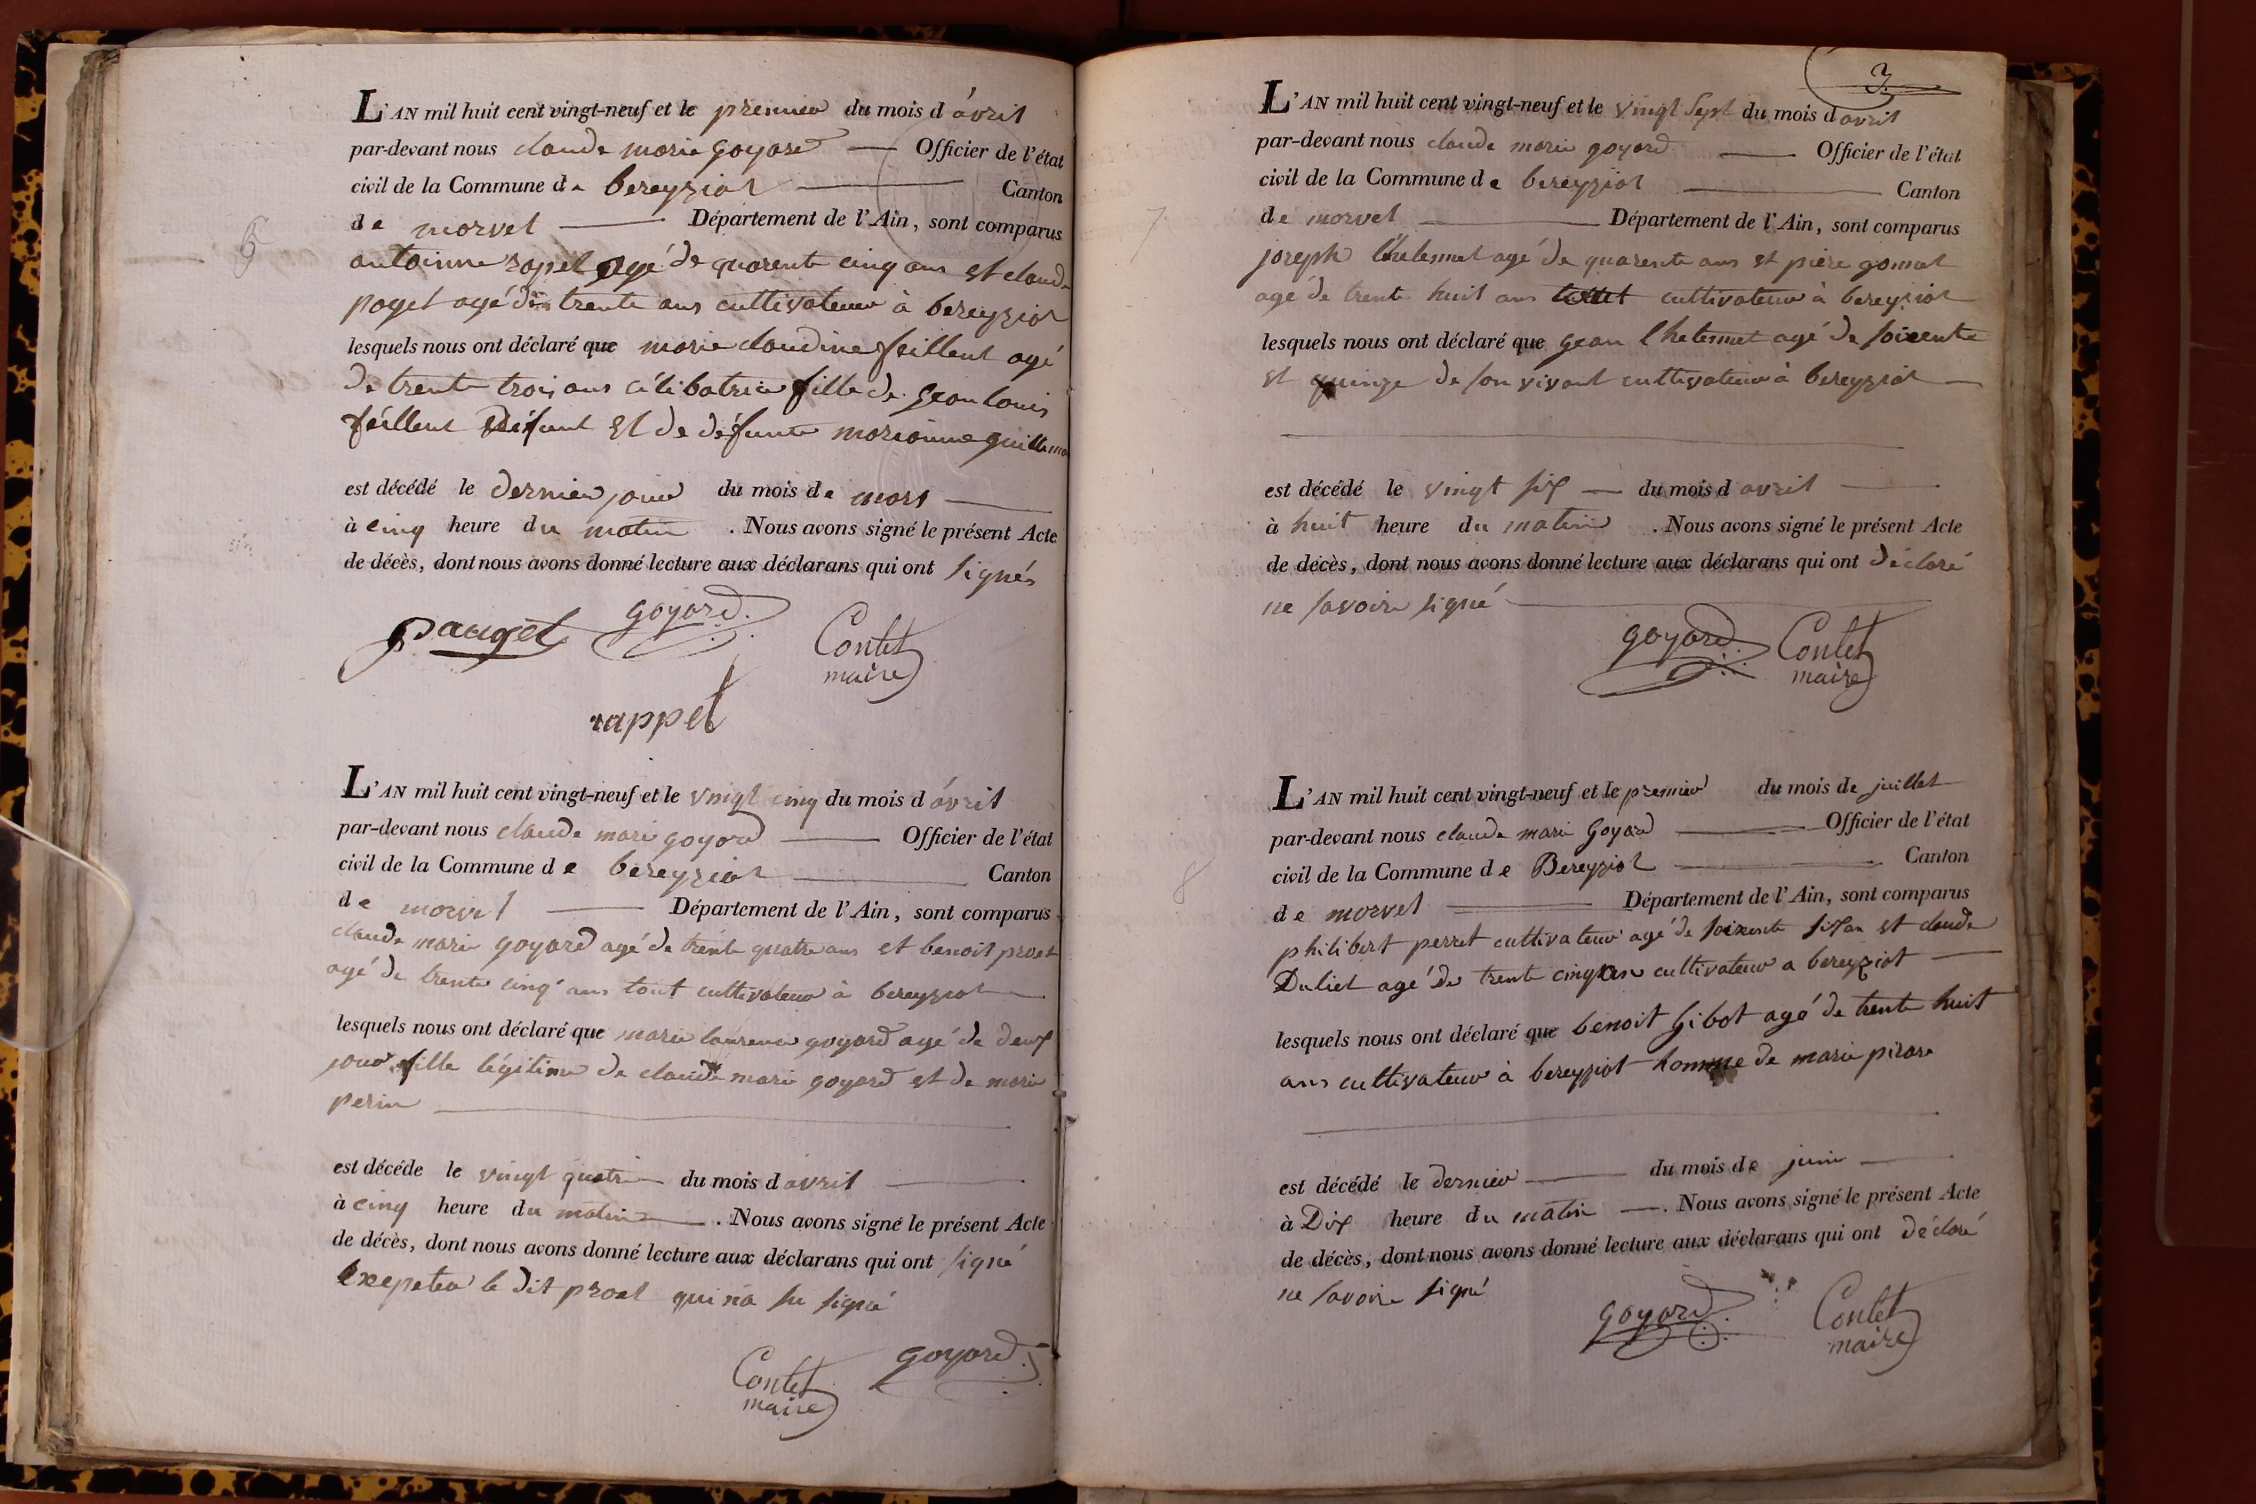 L'AN mil huit cent vingt-neuf et le premier du mois d avril
par-devant nous claude marie goyard Officier de l'état
civil de la Commune de bereyziat Canton
de morvel Département de l'Ain, sont comparus
antoinne rapel agé de quarente cinq ans et claude
poget agé de trente ans cultivateur à bereyziat
lesquels nous ont déclaré que marie claudine feillent agé
de trente trois ans célibatrice fille de gean louis
feillent défunt et de défunte marianne
est décédé le dernier jour du mois de mars
à cinq heure du matin . Nous avons signé le présent Acte
de décès, dont nous avons donné lecture aux déclarans qui ont signés
pauget goyard Contet
maire
rappel
6
L'AN mil huit cent vingt-neuf et le vingt cinq du mois d avril
par-devant nous claude marie goyard Officier de l'état
civil de la Commune de bereyziat Canton
de morvel Département de l'Ain, sont comparus
claude marie goyard agé de trente quatre ans et benoit proet
agé de trente cinq ans tout cultivateur à bereyziat
lesquels nous ont déclaré que marie laurence goyard agé de deux
jour fille légitime de claude marie goyard et de marie
perin
est décéde le vingt quatre du mois d avril
à cinq heure du matin . Nous avons signé le présent Acte
de décès, dont nous avons donné lecture aux déclarans qui ont signé
le dit proet qui na su signé
Contet goyard
maire
3
L'AN mil huit cent vingt-neuf et le vingt sept du mois d avril
par-devant nous claude marie goyard Officier de l'état
civil de la Commune de bereyziat Canton
de morvel Département de l'Ain, sont comparus
7
joseph agé de quarente ans et piere gomat
agé de trente huit ans cultivateur à bereyziat
lesquels nous ont déclaré que gean lhelesmet agé de soixente
et quinze de son vivant cultivateur à bereyziat
est décédé le vingt six du mois d avril
à huit heure du matin . Nous avons signé le présent Acte
de décès, dont nous avons donné lecture aux déclarans qui ont déclaré
ne savoire signé
goyard Contet
maire
L'AN mil huit cent vingt-neuf et le premier du mois de juillet
par-devant nous claude marie Goyard Officier de l'état
civil de la Commune de Bereyziat Canton
8
de morvel Département de l'Ain, sont comparus
philibert perret cultivateur agé de soixente six an et claude
Duliet agé de trente cinq an cultivateur a bereyziat
lesquels nous ont déclaré que benoit gibot agé de trente huit
ans cultivateur à bereyziat homme de marie pirare
est décédé le dernier du mois de juin
à Dix heure du matin . Nous avons signé le présent Acte
de décès, dont nous avons donné lecture aux déclarans qui ont déclaré
ne savoire signé
goyard Contet
maire